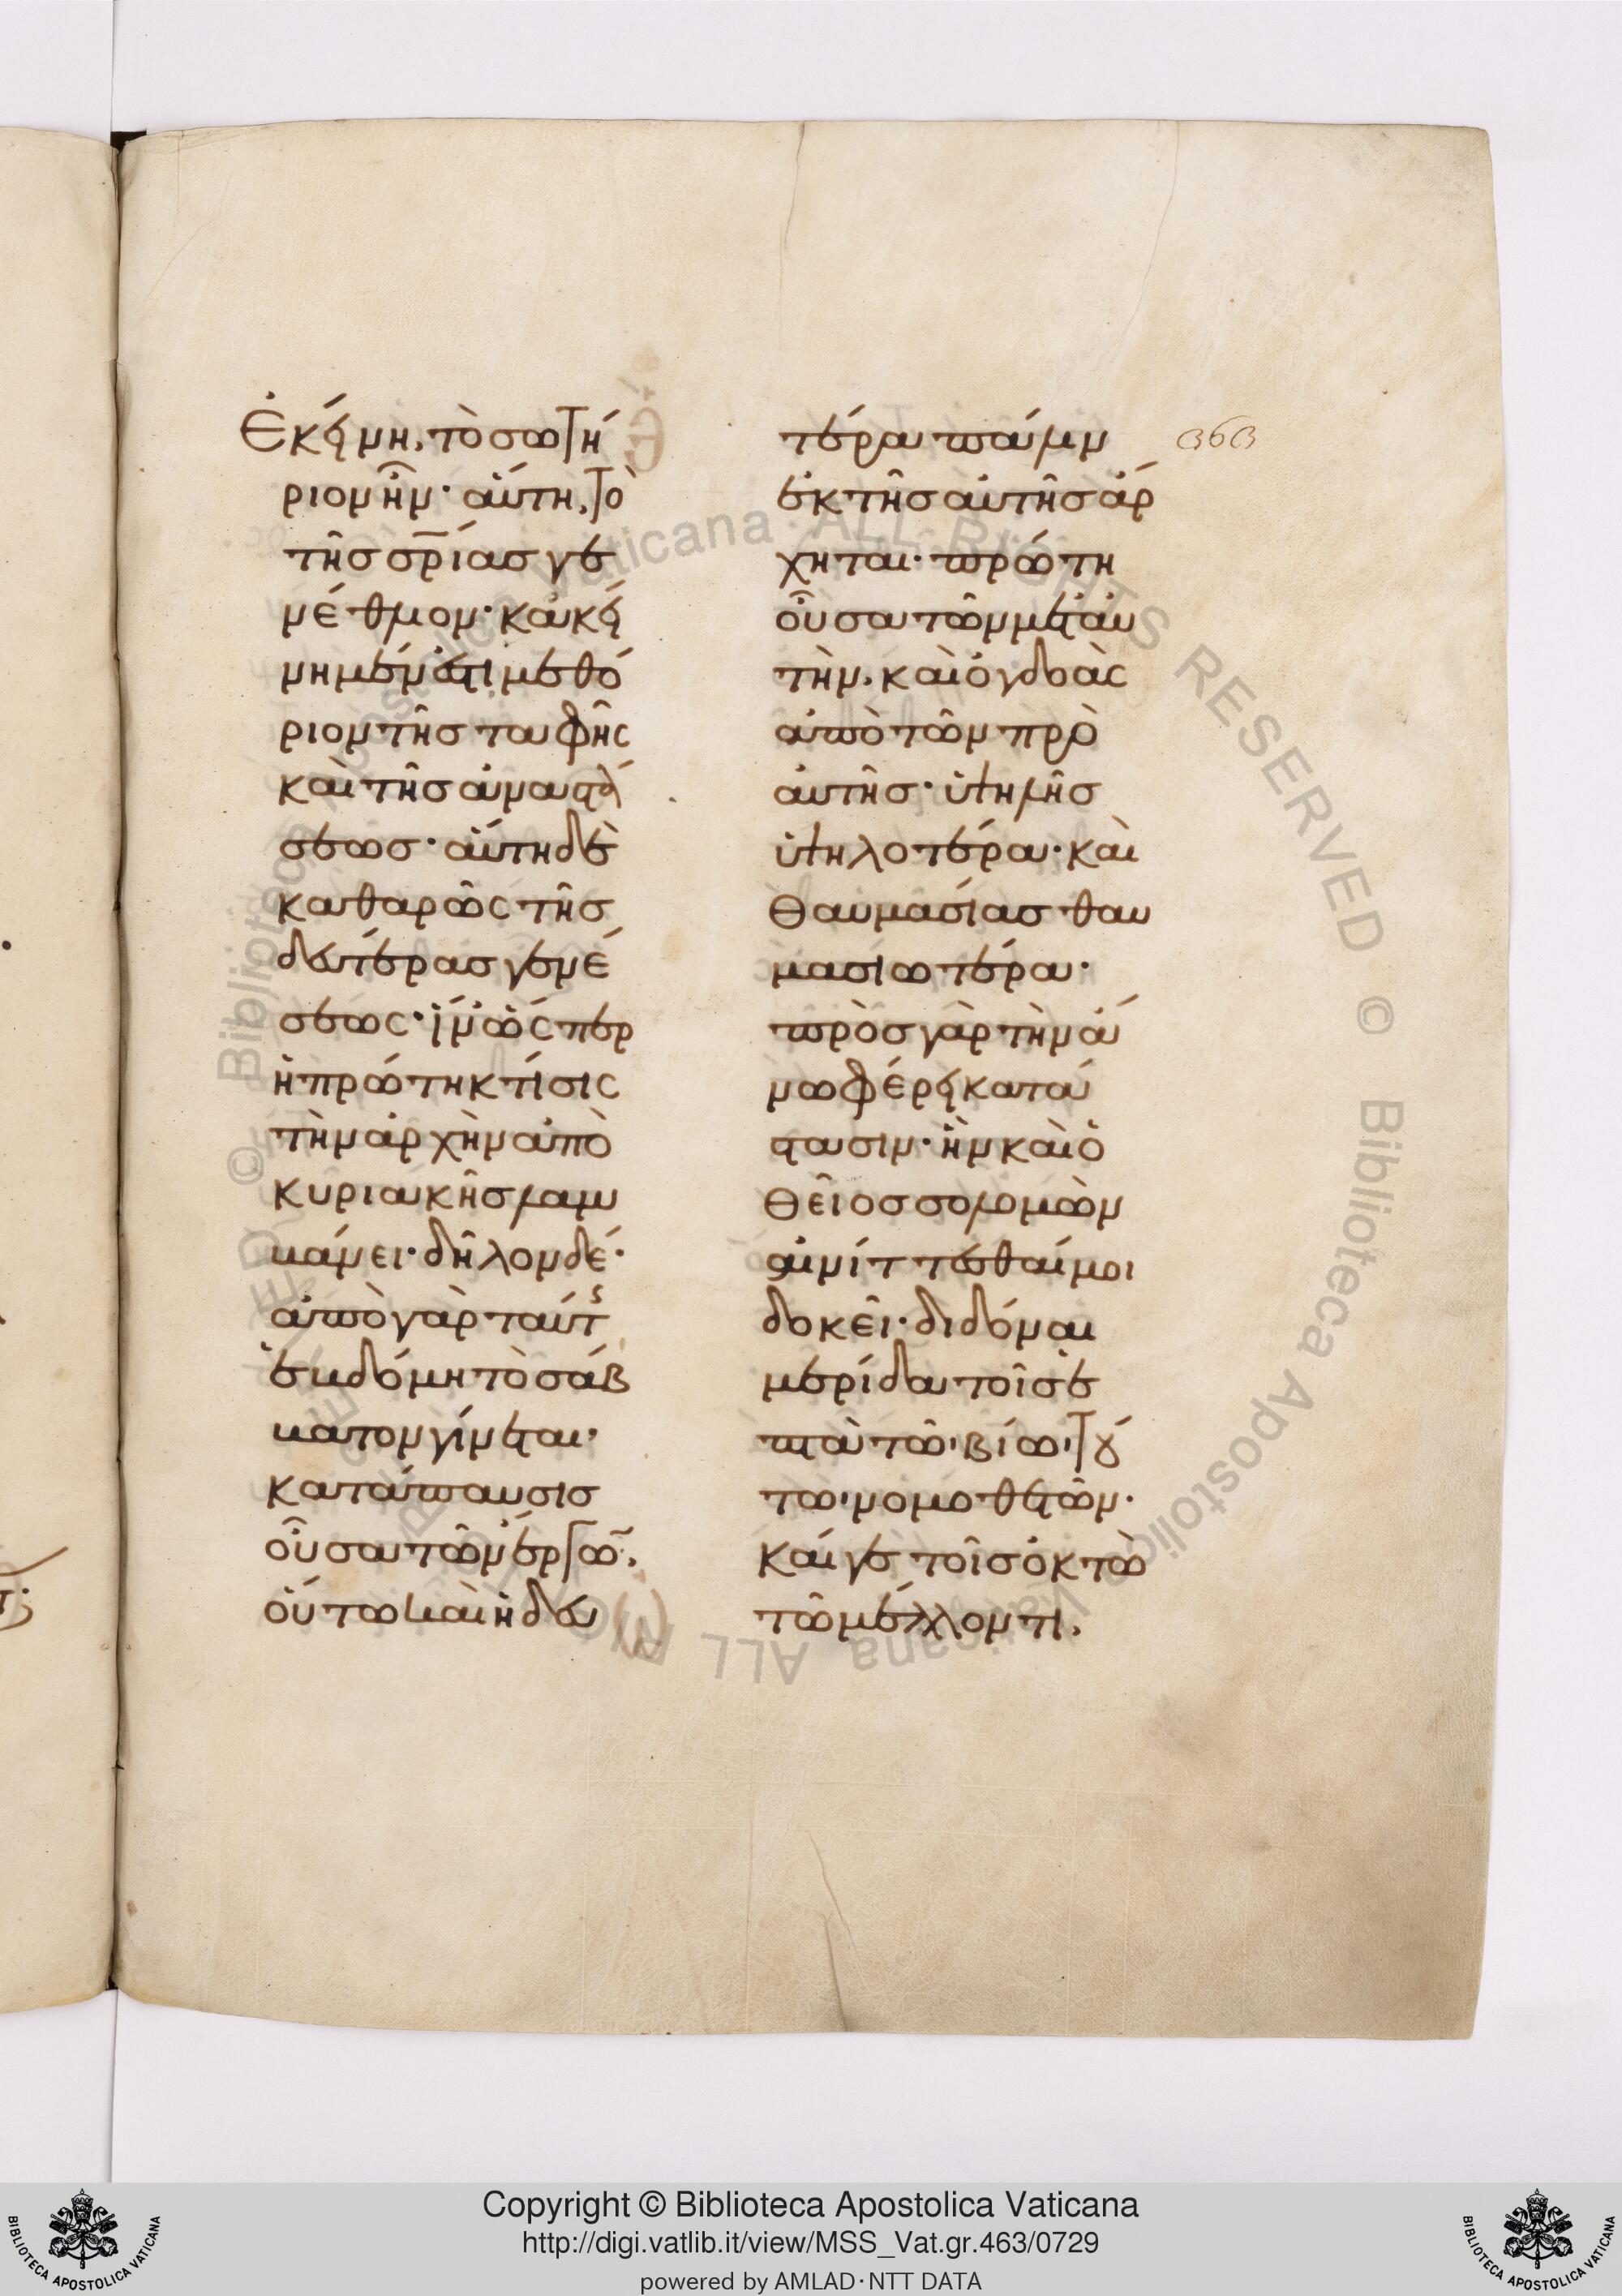 Ἐκείνη, τὸ σωτή
ριον ἦν· αὕτη, τὸ
τῆς σ̅ρ̅ίας γε
νέθλιον· κἀκεί
νη μὲν ἐστι μεθό
ριον τῆς ταφῆς
καὶ τῆς ἀναστά
σεως· αὕτη δὲ
καθαρῶς τῆς
δευτέρας γενέ
σεως· ἵν' ὥσπερ
ἡ πρώτη κτίσις
τὴν ἀρχὴν ἀπὸ
κυριακῆς λαμ
βάνει· δῆλον δέ·
ἀπὸ γὰρ ταύτης
ἑβδόμη τὸ σάβ
βατον γίνεται·
κατάπαυσις
οὖσα τῶν ἔργων,
οὕτω καὶ ἡ δευ
τέρα πάλιν
ἐκ τῆς αὐτῆς ἄρ
χηται· πρώτη
οὖσα τῶν μετ' αὐ
τὴν, καὶ ὀγδοὰς
ἀπὸ τῶν πρὸ
αὐτῆς· ὑψηλῆς
ὑψηλοτέρα· καὶ
θαυμασίας θαυ
μασιωτέρα·
πρὸς γὰρ τὴν ἄ
νω φέρει κατά
στασιν· ἣν καὶ ὁ
θεῖος σολομὼν
αἰνίττεσθαί μοι
δοκεῖ· διδόναι
μερίδα τοῖς ἑ
πτὰ τῶ βίω τού
τω νομοθετῶν·
καί γε τοῖς ὀκτὼ
τῶ μέλλοντι,
363
Copyright © Biblioteca Apostolica Vaticana
http://digi.vatlib.it/view/MSS_Vat.gr.463/0729
powered by AMLAD·NTT DATA
BIBLIOTECA APOSTOLICA VATICANA
BIBLIOTECA APOSTOLICA VATICANA
© Biblioteca Apostolica Vaticana · ALL RIGHTS RESERVED
© Biblioteca Apostolica Vaticana ALL RIGHTS RESERVED